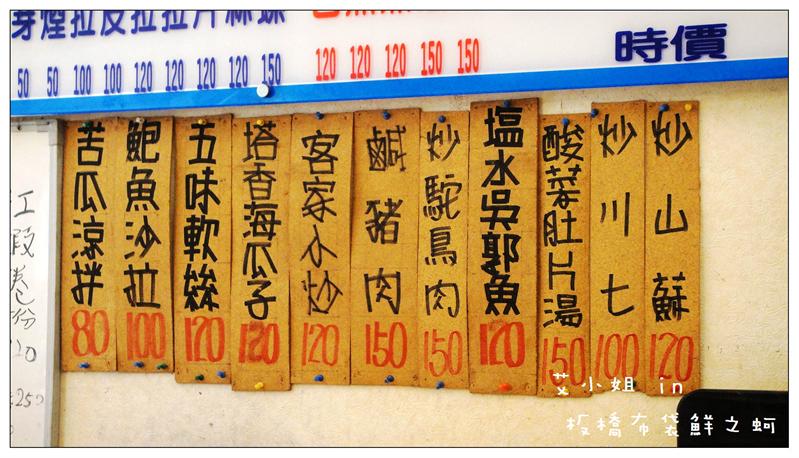 時價
50 50 100 100 120 120 120 120 150
120 120 120 150 150
炒山蘇 120
炒川七 100
酸菜肚片湯 150
塩水吳郭魚 120
炒鴕鳥肉 150
鹹豬肉 150
客家小炒 120
塔香海瓜子 120
五味軟絲 120
鮑魚沙拉 100
苦瓜涼拌 80
艾小姐 in
板橋布袋鮮之蚵